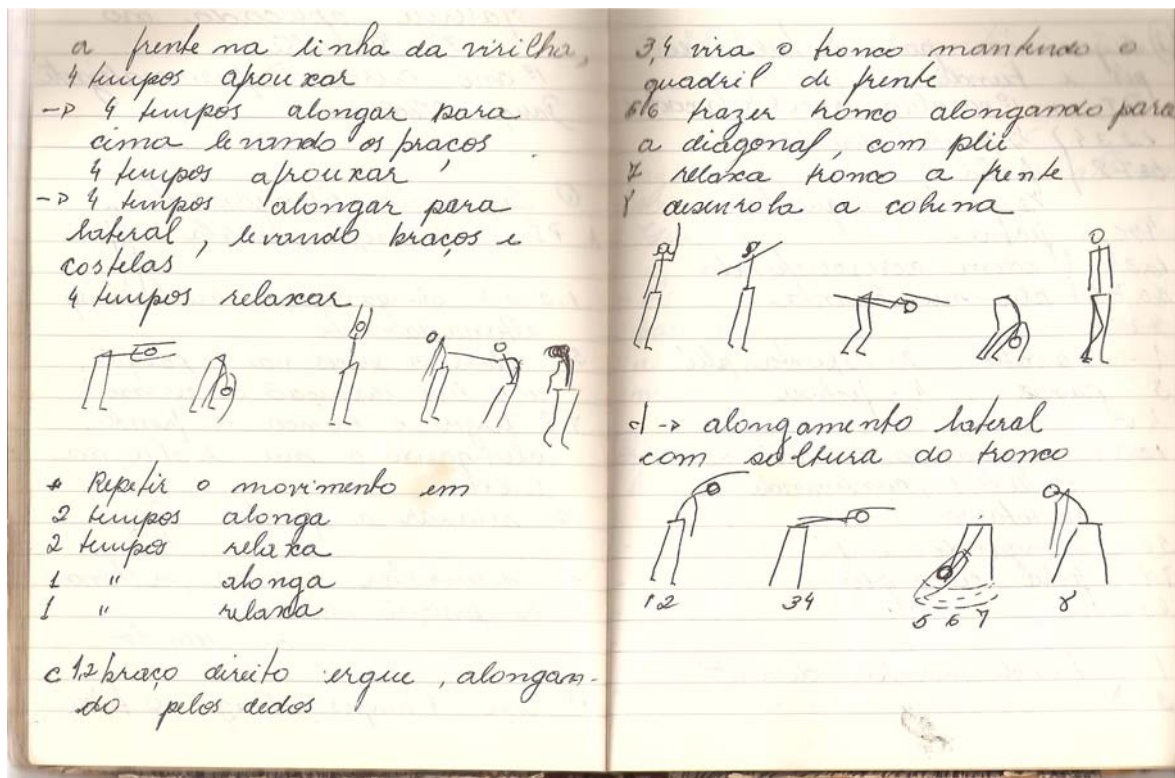 a frente na linha da virilha,
4 tempos afrouxar
-> 4 tempos alongar para
cima levando os braços
4 tempos afrouxar
-> 4 tempos alongar para
lateral, levando braços e
costelas
4 tempos relaxar
* Repetir o movimento em
2 tempos alonga
2 tempos relaxa
1 " alonga
1 " relaxa
c 1,2 braço direito ergue, alongan-
do pelos dedos
3,4 vira o tronco mantendo o
quadril de frente
trazer tronco alongando para
a diagonal, com plié
7 relaxa tronco a frente
8 desenrola a coluna
d -> alongamento lateral
com soltura do tronco
1 2 3 4 5 6 7 8